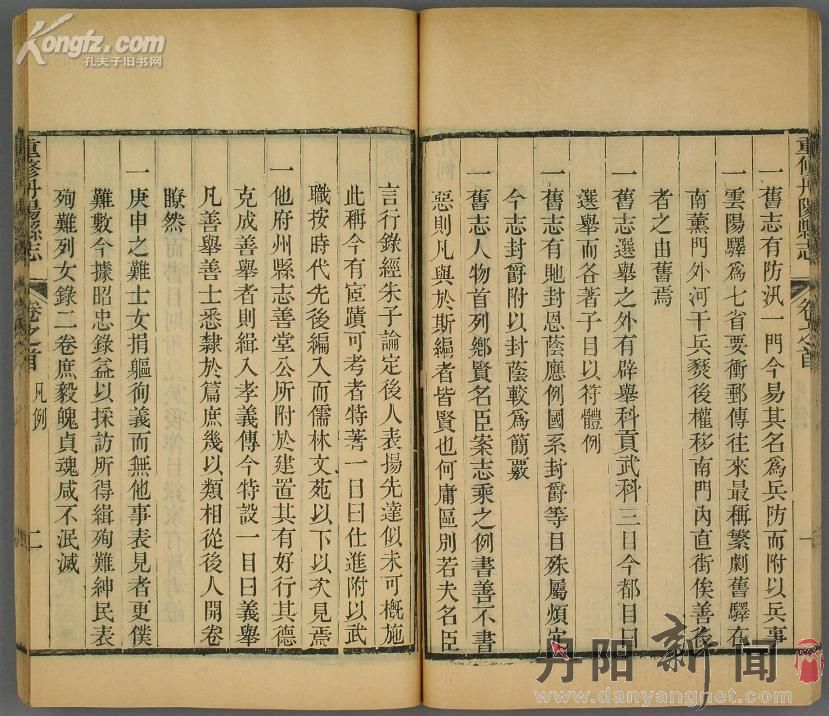 Kongfz.com
孔夫子旧书网
重修丹陽縣志
卷之首
一舊志有防汛一門今易其名為兵防而附以兵事
一雲陽驛為七省要衝郵傳往來最稱繁劇舊驛在
南薰門外河干兵燹後權移南門內直街俟善後
者之由舊焉
一舊志選舉之外有辟舉科貢武科三目今都目曰
選舉而各著子目以符體例
一舊志有貤封恩蔭應例國系封爵等目殊屬煩
今志封爵附以封蔭較為簡覈
一舊志人物首列鄉賢名臣案志乘之例書善不書
惡則凡與於斯編者皆賢也何庸區別若夫名臣
言行錄經朱子論定後人表揚先達似未可概施
此稱今有宦蹟可考者特著一目曰仕進附以武
職按時代先後編入而儒林文苑以下以次見焉
一他府州縣志善堂公所附於建置其有好行其德
克成善舉者則緝入孝義傳今特設一目曰義舉
凡善舉善士悉隸於篇庶幾以類相從後人開卷
瞭然
一庚申之難士女捐軀徇義而無他事表見者更僕
難數今據昭忠錄益以採訪所得緝殉難紳民表
殉難列女錄二卷庶毅魄貞魂咸不泯滅
重修丹陽縣志
卷之首
凡例
二
丹阳新闻
www.danyangnet.com